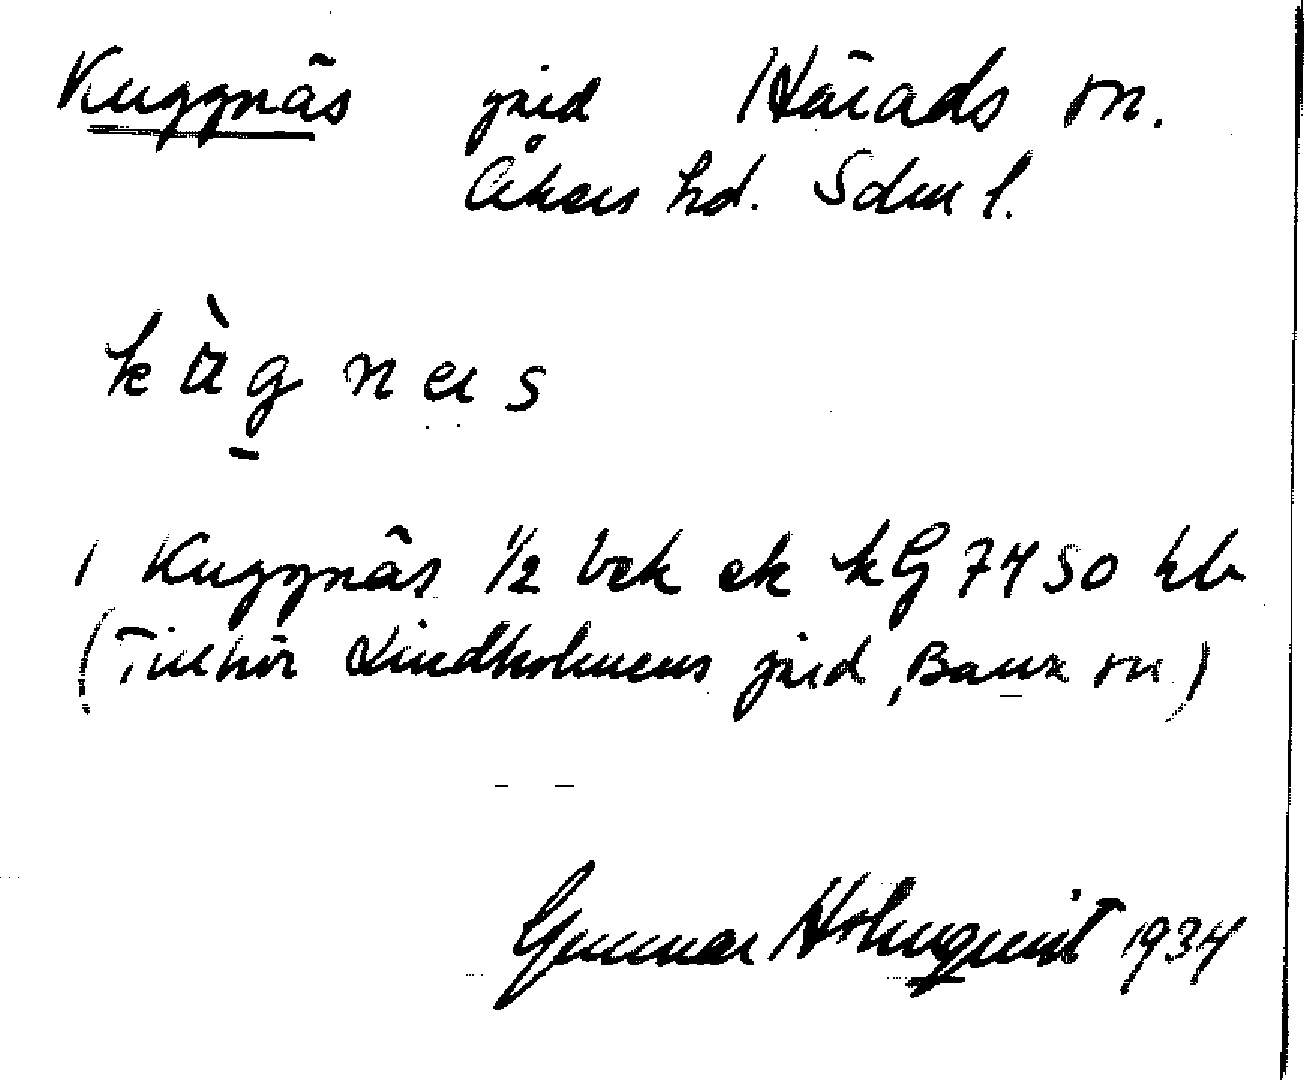 Kuggnäs gård Härads sn.
Åkers hd. Sdm l.
1 Kuggnäs 1/2 bek ek kG 7450 hb
(Tillhör Lindholmens gård, Barva sn)
Gunnar Holmquist 1934